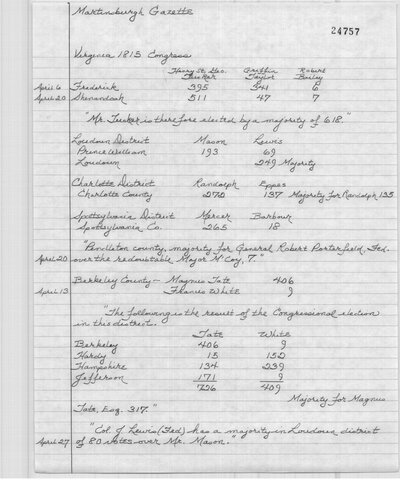 Martinsburgh Gazette
24757
Virginia 1815 Congress
Henry St. Geo. Griffin Robert
Tucker Taylor Bailey
April 6 Frederick 395 341 6
April 20 Shenandoah 511 47 7
"Mr. Tucker is therefore elected by a majority of 618."
Loudoun District Mason Lewis
Prince William 193 69
Loudoun 249 Majority
Charlotte District Randolph Eppes
Charlotte County 272 137 Majority for Randolph 135
Spottsylvania District Mercer Barbour
Spottsylvania Co. 265 18
"Pendleton county, majority for General Robert Porterfield, Fed.
April 20 over the redoubtable Major McCoy, 7."
Berkeley County — Magnus Tate 406
April 13 Francis White 9
"The following is the result of the Congressional election
in this district.
Tate White
Berkeley 406 9
Hardy 15 152
Hampshire 134 239
Jefferson 171 9
726 409
Majority for Magnus
Tate, Esq. 317."
"Col. J. Lewis (Fed) has a majority in Loudoun district
April 27 of 80 votes over Mr. Mason."